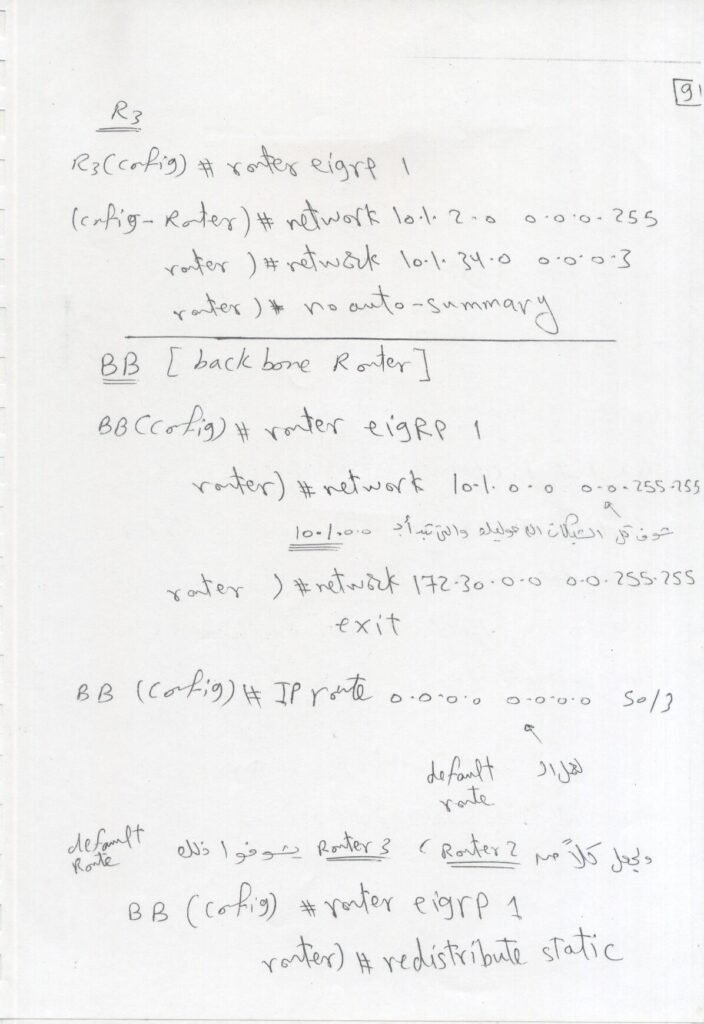 91
R3
R3(config) # router eigrp 1
(config-Router) # network 10.1.2.0 0.0.0.255
router ) # network 10.1.34.0 0.0.0.3
router ) # no auto-summary
BB [backbone Router]
BB(config) # router eigRp 1
router) # network 10.1.0.0 0.0.255.255
شوف كل الشبكات الـ حواليك والتي تبدأ بـ 10.1.0.0
router ) # network 172.30.0.0 0.0.255.255
exit
BB (config) # IP route 0.0.0.0 0.0.0.0 S0/3
لعمل الـ default route
ولجعل كلاً من Router2 , Router3 يشوفوا ذلك default Route
BB (config) # router eigrp 1
router) # redistribute static